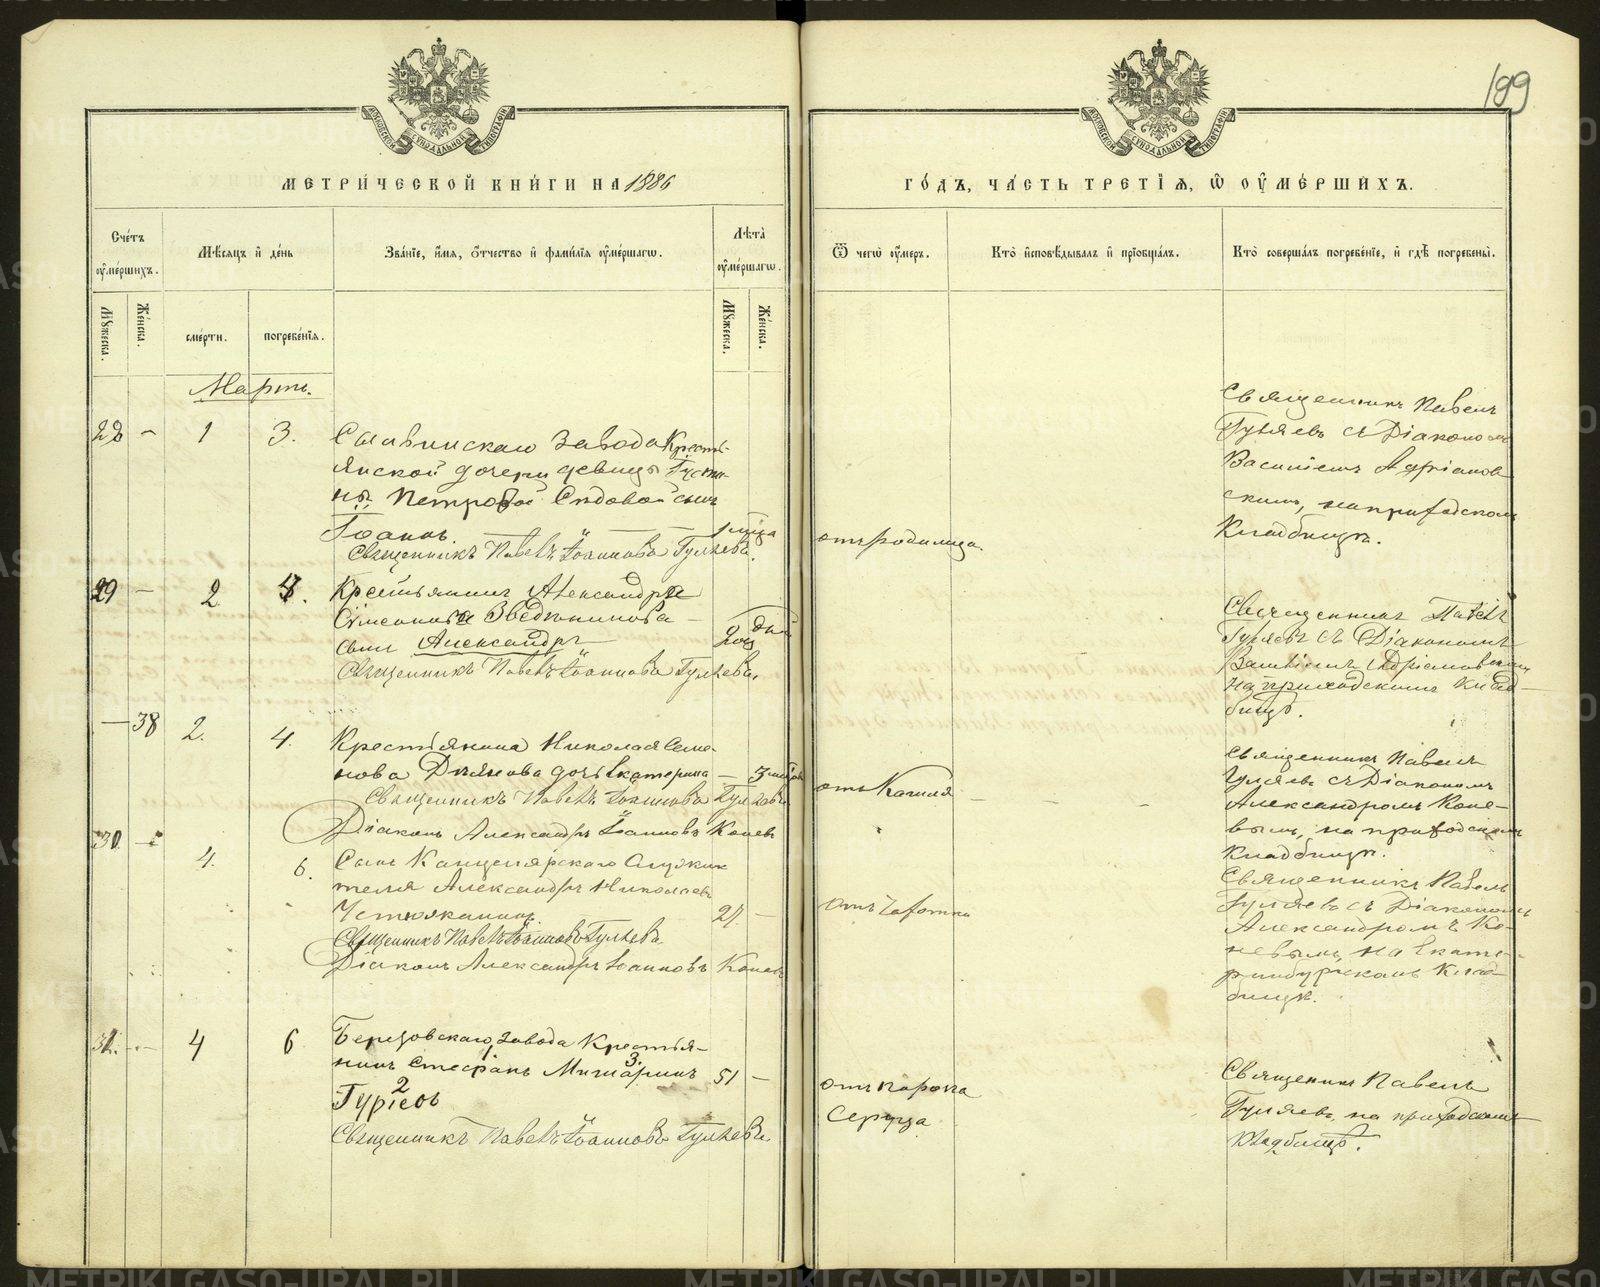 199
МЕТРИ́ЧЕСКОЙ КНИ́ГИ НА 1886
ГО́ДЪ, ЧА́СТЬ ТРЕТЇѦ, Ѡ҆ ОУ҆МЕ́РШИХЪ.
Сче́тъ оу҆ме́ршихъ.
Мѣ́сѧцъ и҆ де́нь
Зва́нїе, и҆́мѧ, ѻ҆́тчество и҆ фами́лїѧ оу҆ме́ршагѡ.
Лѣта̀ оу҆ме́ршагѡ.
Ѿ чегѡ̀ оу҆́меръ.
Кто̀ и҆сповѣ́дывалъ и҆ прїѡбща́лъ.
Кто̀ соверша́лъ погребе́нїе, и҆ гдѣ̀ погребены̀.
Мꙋ́жеска.
Же́нска.
сме́рти.
погребе́нїѧ.
Мꙋ́жеска.
Же́нска.
Мартъ.
28 – 1 3.
Сылвинскаго завода Кресть-
янской дочери девицы Густи-
ны Петровой Седовой сынъ
Іоаннъ. 1 мѣсца
Священникъ Павелъ Іоанновъ Гуляевъ.
отъ родимца.
Священникъ Павелъ
Гуляевъ съ Діакономъ
Василіемъ Адріанов-
скимъ, на приходскомъ
Кладбищѣ.
29 – 2 4.
Крестьянина Александра
Симеонова Зведюнинова
сынъ Александръ 2 дня
Священникъ Павелъ Іоанновъ Гуляевъ.
Священникъ Павелъ
Гуляевъ съ Діакономъ
Василіемъ Адріановскимъ
на приходскомъ клад-
бищѣ.
– 38 2. 4.
Крестьянина Николая Семе-
нова дочь Екатерина – 3
Священникъ Павелъ Іоанновъ Гуляевъ
Діаконъ Александръ Іоанновъ Коневъ
отъ Кашля – – –
Священникъ Павелъ
Гуляевъ съ Діакономъ
Александромъ Коне-
вымъ, на приходскомъ
Кладбищѣ.
30 – 4. 6.
Сынъ Канцелярскаго Служи-
теля Александръ Николаевъ
Устюжанинъ. 27. –
Священникъ Павелъ Іоанновъ Гуляевъ
Діаконъ Александръ Іоанновъ Коневъ
отъ чахотки
Священникъ Павелъ
Гуляевъ съ Діакономъ
Александромъ Ко-
невымъ, на Екате-
ринбургскомъ Клад-
бищѣ.
31. – 4 6
Березовскаго завода Крестья-
нинъ Стефанъ Мишаринъ 51 –
1 3.
2
Гурїевъ
Священникъ Павелъ Іоанновъ Гуляевъ.
отъ порока
Сердца
Священникъ Павелъ
Гуляевъ на приходскомъ
кладбищѣ.
METRIKI.GASO-URAL.RU